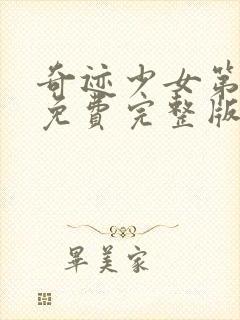 奇迹少女第
免費完整版
畢美家